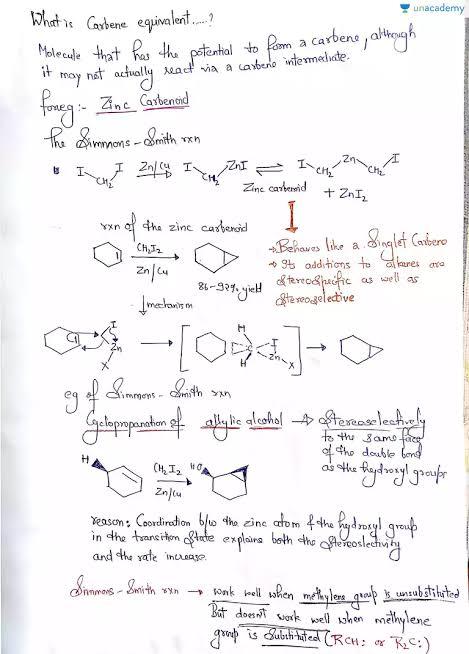 unacademy
What is Carbene equivalent.....?
Molecule that has the potential to form a carbene, although
it may not actually react via a carbene intermediate.
foreg:- Zinc Carbenoid
The Simmons-Smith rxn
I CH2 I Zn/Cu I CH2 ZnI ⇌ I CH2 Zn CH2 I
Zinc carbenoid + ZnI2
rxn of the zinc carbenoid
CH2I2
Zn/Cu
86-92% yield
→ Behaves like a Singlet Carbene
→ Its additions to alkenes are
stereospecific as well as
stereoselective
↓ mechanism
I Zn X → [ H C H I Zn X ] →
eg of Simmons-Smith rxn
Cyclopropanation of allylic alcohol → Stereoselectively
to the same face
of the double bond
as the hydroxyl groups
H CH2I2 HO
Zn/Cu
reason: Coordination b/w the zinc atom & the hydroxyl group
in the transition state explains both the stereoslectivity
and the rate increase.
Simmons-Smith rxn → work well when methylene group is unsubstituted
But doesn't work well when methylene
group is Substituted (RCH: or R2C:)